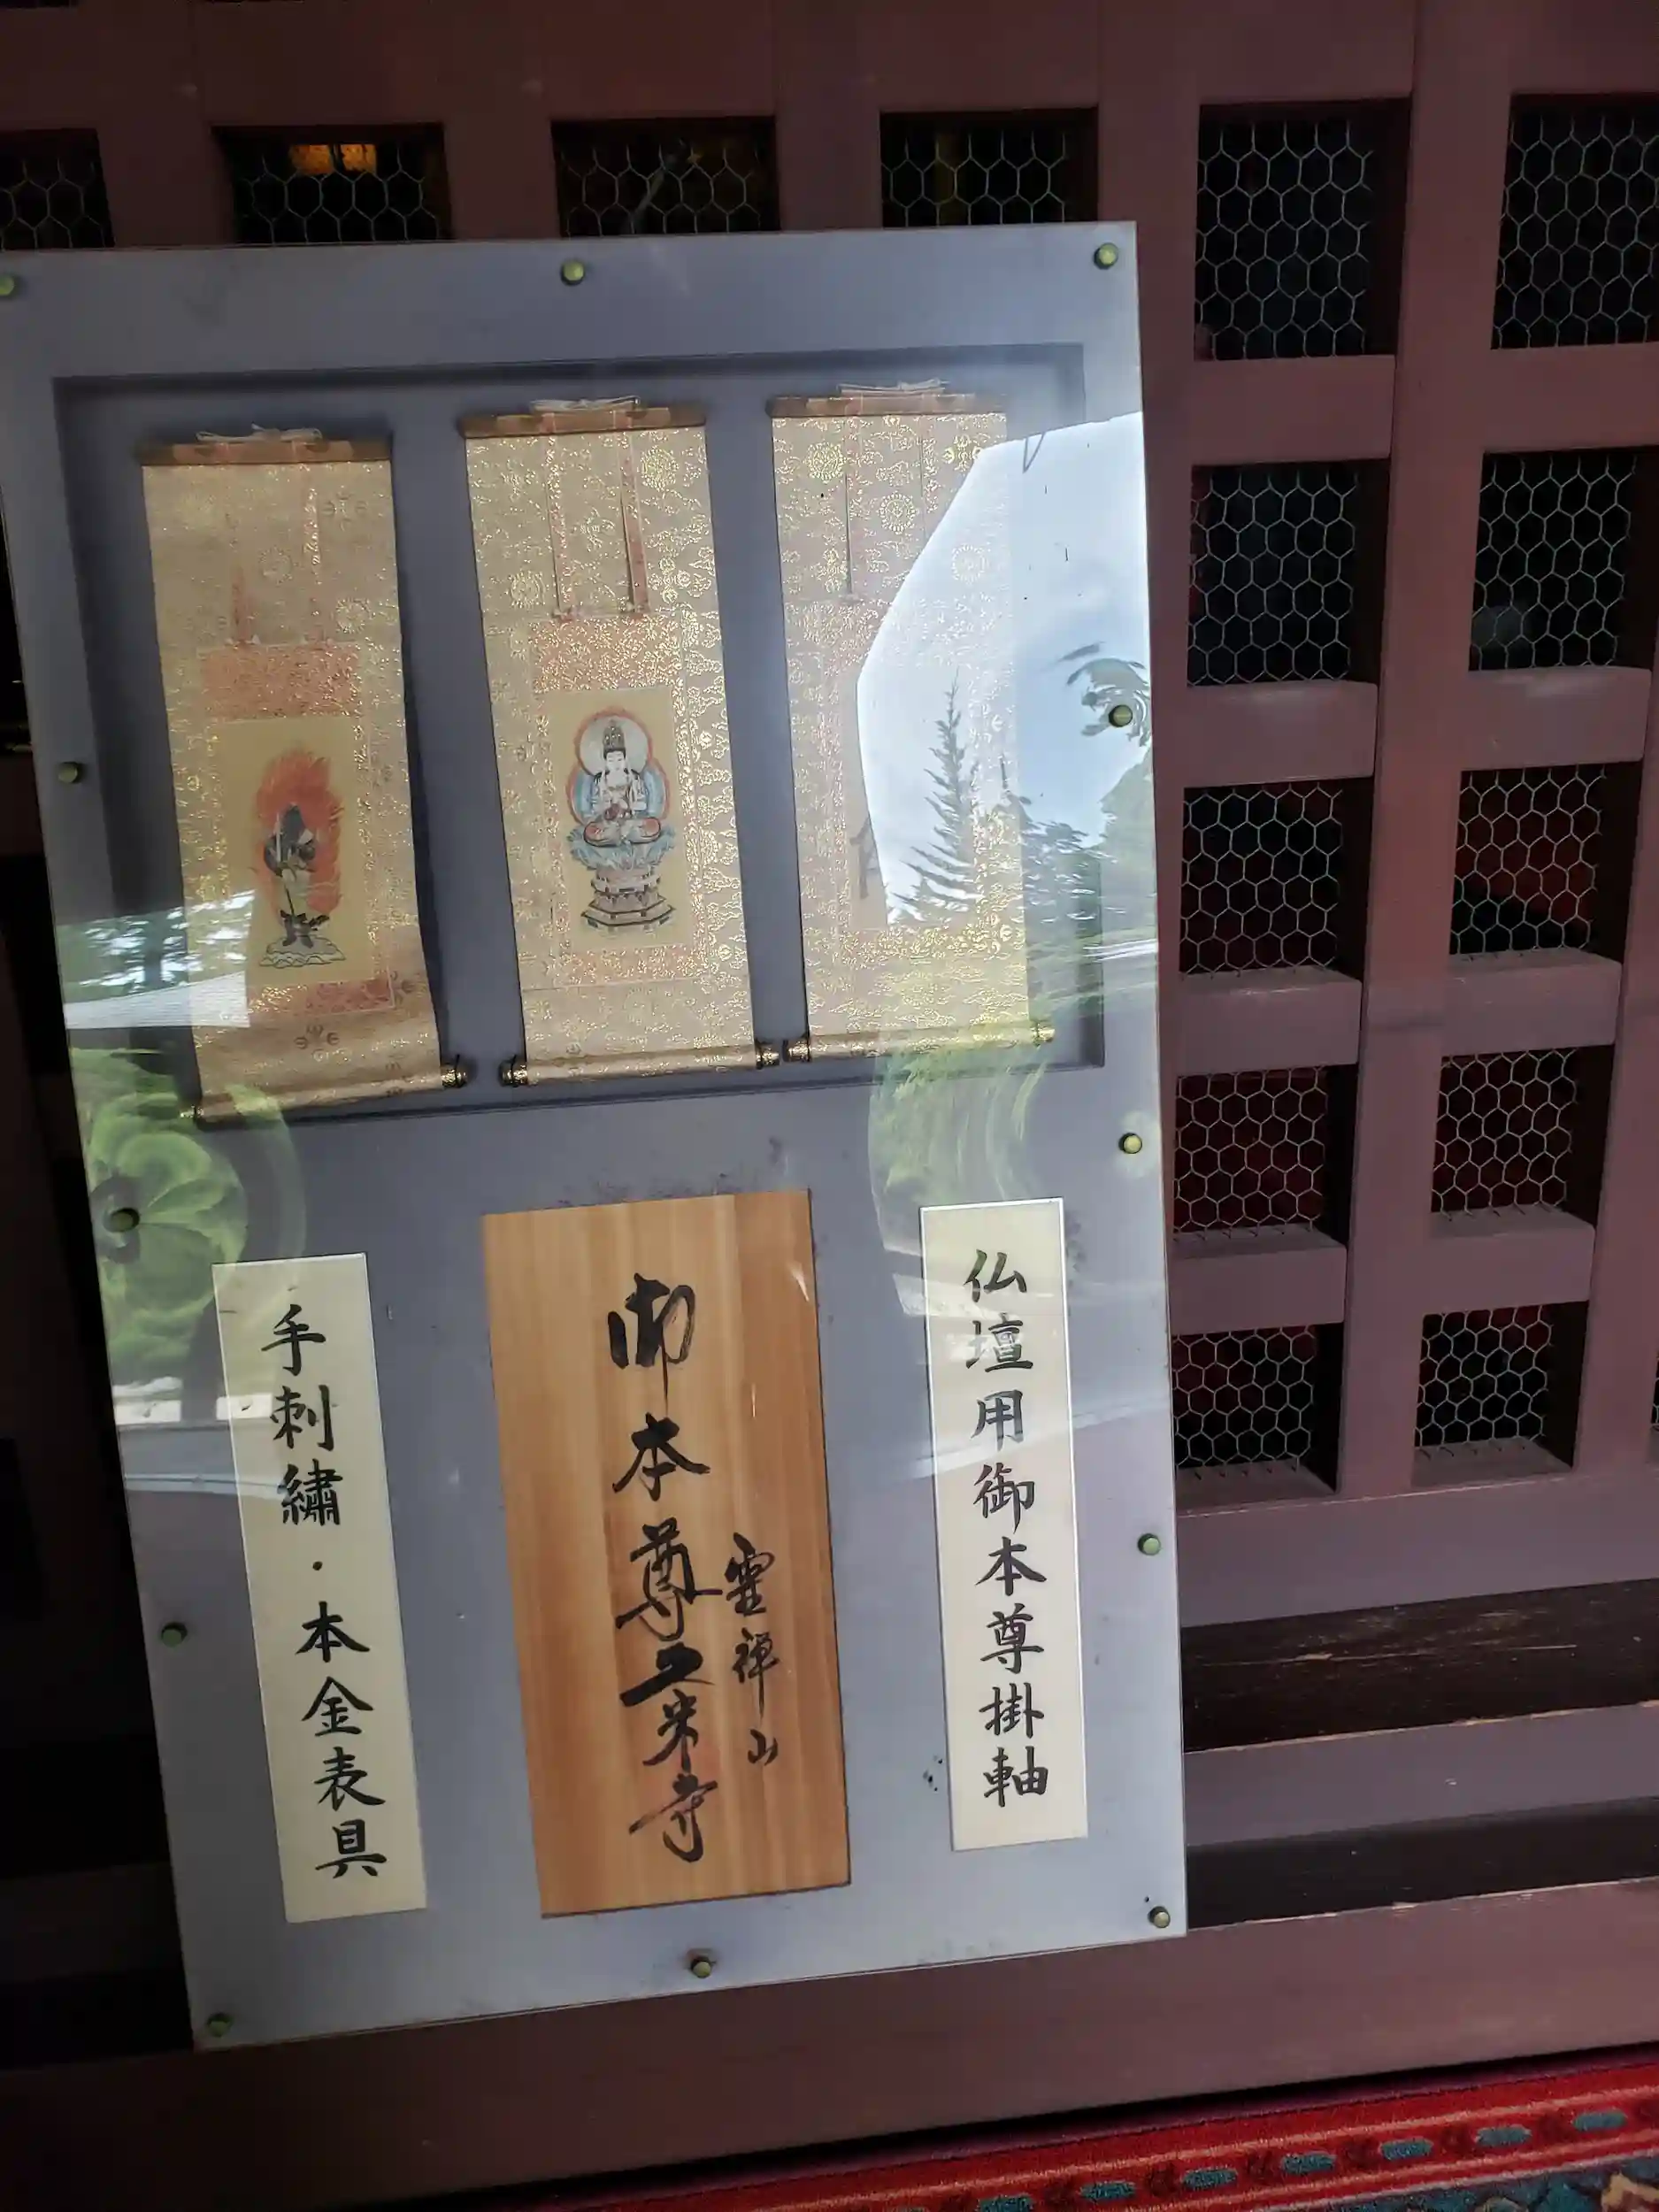 仏壇用御本尊掛軸
霊禅山
御本尊久米寺
手刺繡・本金表具